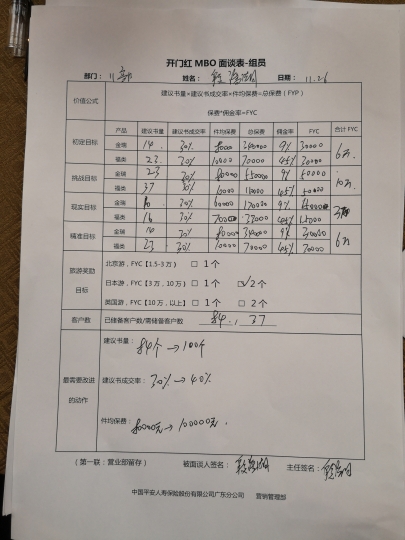 开门红 MBO 面谈表-组员
部门： 姓名： 日期： 11.26
价值公式
建议书量*建议书成交率*件均保费=总保费（FYP）
保费*佣金率=FYC
产品 建议书量 建议书成交率 件均保费 总保费 佣金率 FYC 合计 FYC
初定目标 金瑞 14 30% 80000 340000 9% 30000 6万
福类 23 30% 10000 70000 45% 30000
挑战目标 金瑞 23 30% 80000 550000 9% 50000 10万
福类 37 30% 110000 45% 50000
现实目标 金瑞 30% 170000 9% 15000
福类 30% 45% 15000
精准目标 金瑞 14 30% 80000 340000 9% 30000 6万
福类 23 30% 10000 70000 45% 30000
旅游奖励目标
北京游，FYC【1.5-3万】 □ 1个
日本游，FYC【3万，10万】 □ 1个 ☑ 2个
美国游，FYC【10万，以上】 □ 1个 □ 2个
客户数 已储备客户数/需储备客户数 84 , 37
最需要改进的动作
建议书量： 84个→100个
建议书成交率： 30%→40%
件均保费： 80000元→100000元.
（第一联：营业部留存） 被面谈人签名： 主任签名：
中国平安人寿保险股份有限公司广东分公司 营销管理部